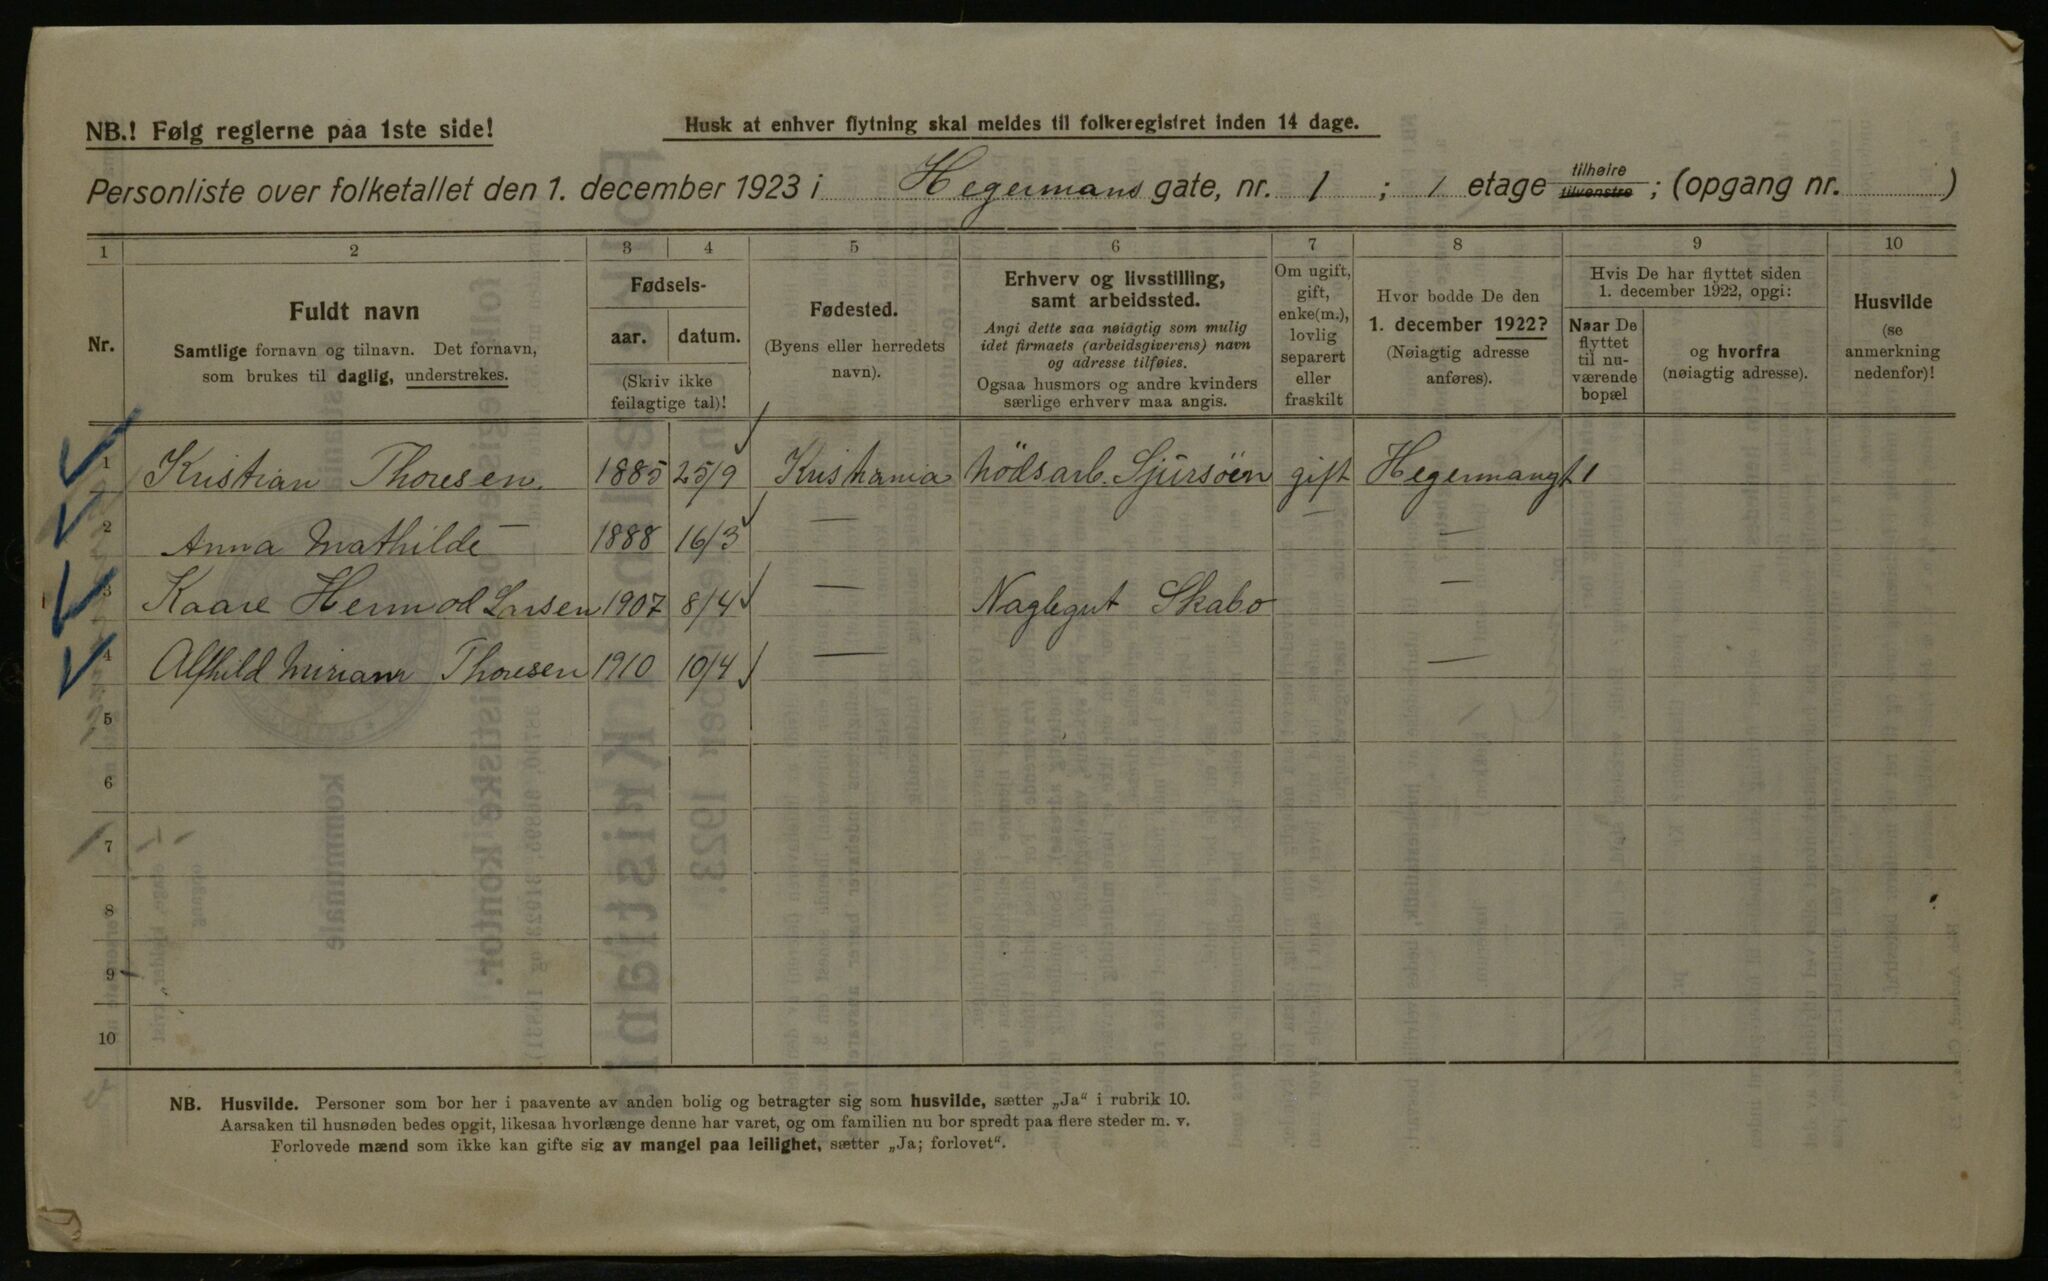 NB.! Følg reglerne paa 1ste side!
Husk at enhver flytning skal meldes til folkeregistret inden 14 dage.
Personliste over folketallet den 1. december 1923 i Hegermans gate, nr. 1 ; 1 etage tilhøire tilvenstre ; (opgang nr. )
1 2 3 4 5 6 7 8 9 10
Nr.
Fuldt navn
Samtlige fornavn og tilnavn. Det fornavn,
som brukes til daglig, understrekes.
Fødsels-
aar. datum.
(Skriv ikke
feilagtige tal)!
Fødested.
(Byens eller herredets
navn).
Erhverv og livsstilling,
samt arbeidssted.
Angi dette saa nøiagtig som mulig
idet firmaets (arbeidsgiverens) navn
og adresse tilføies.
Ogsaa husmors og andre kvinders
særlige erhverv maa angis.
Om ugift,
gift,
enke(m.),
lovlig
separert
eller
fraskilt
Hvor bodde De den
1. december 1922?
(Nøiagtig adresse
anføres).
Hvis De har flyttet siden
1. december 1922, opgi:
Naar De
flyttet
til nu-
værende
bopæl
og hvorfra
(nøiagtig adresse).
Husvilde
(se
anmerkning
nedenfor)!
1 Kristian Thoresen. 1885 25/9 Kristiania Nödsarb. Sjursöen gift Hegermangt 1
2 Anna Mathilde — 1888 16/3 — — —
3 Kaare Hermod Larsen 1907 8/4 — Naglegut Skabo —
4 Alfhild Miriam Thoresen 1910 10/4 — —
5
6
7
8
9
10
NB. Husvilde. Personer som bor her i paavente av anden bolig og betragter sig som husvilde, sætter „Ja“ i rubrik 10.
Aarsaken til husnøden bedes opgit, likesaa hvorlænge denne har varet, og om familien nu bor spredt paa flere steder m. v.
Forlovede mænd som ikke kan gifte sig av mangel paa leilighet, sætter „Ja; forlovet“.